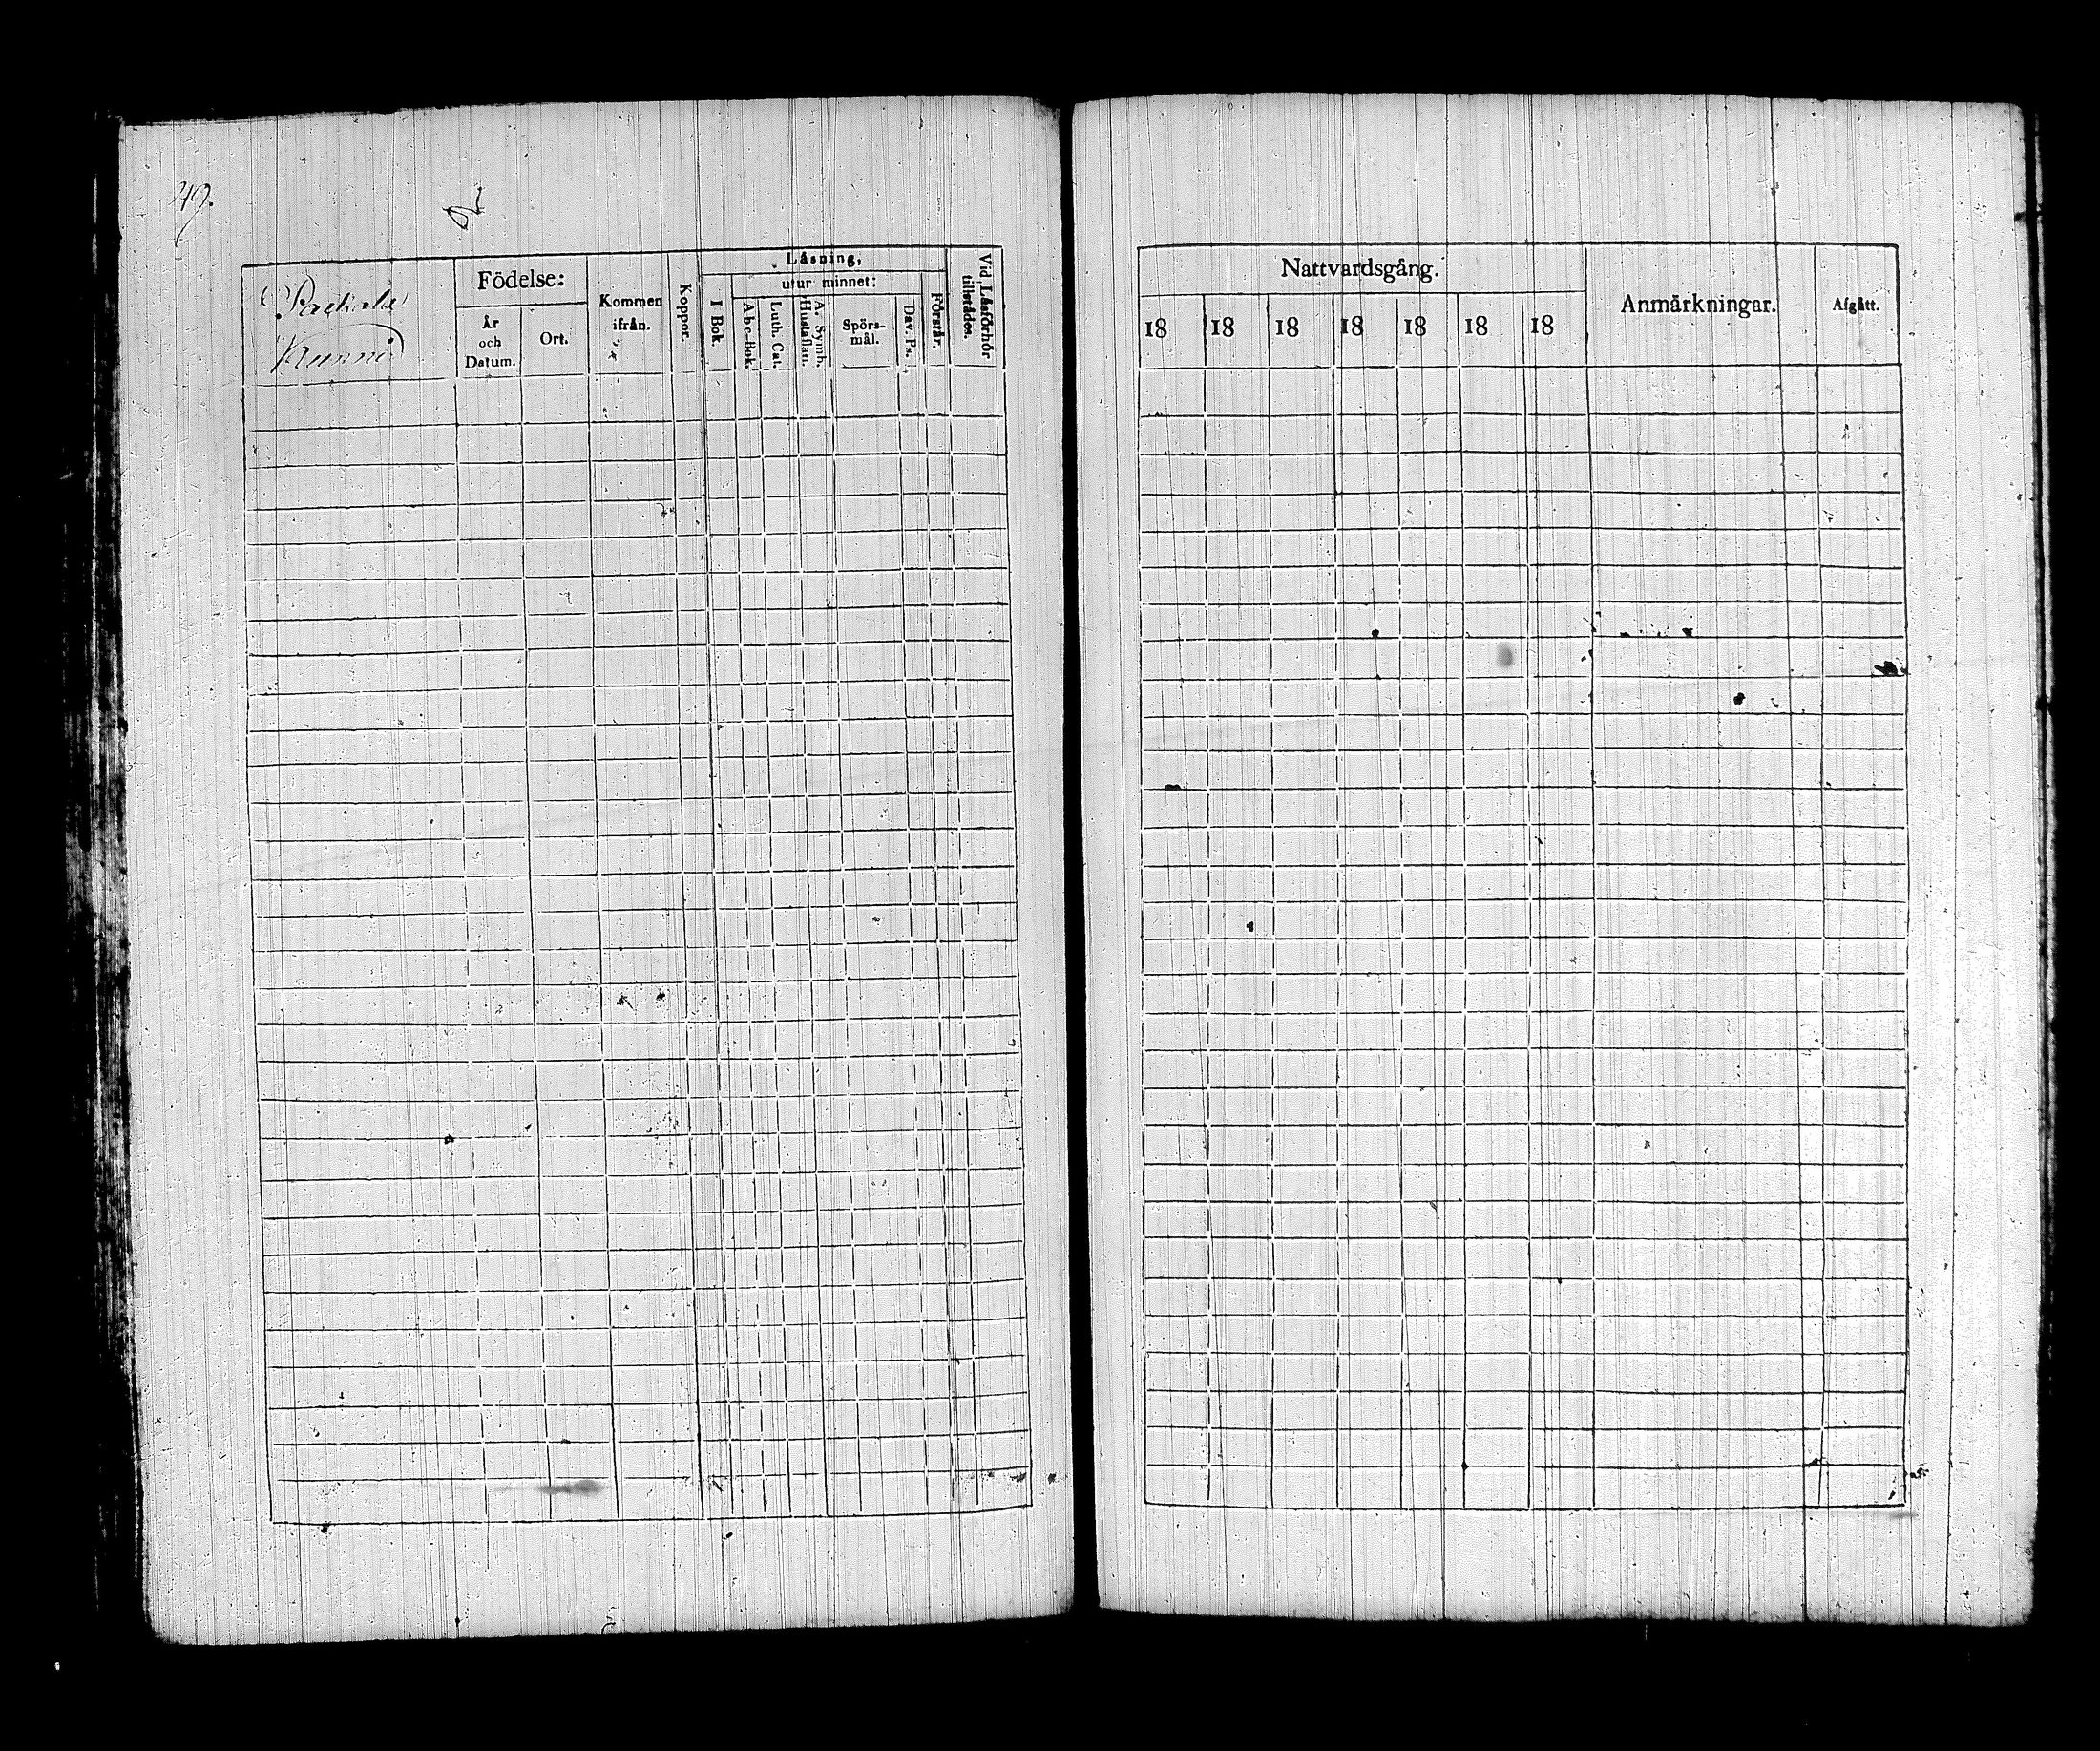 49.
Födelse:
År
och
Datum.
Ort.
Kommen
ifrån.
Koppor.
Läsning,
utur minnet:
I Bok.
Abc-Bok.
Luth. Cat.
A. Symb.
Hustaflan.
Spörs-
mål.
Dav. Ps.
Förstår.
Vid Läsförhör
tillstädes.
Nattvardsgång.
18 18 18 18 18 18 18
Anmärkningar.
Afgått.